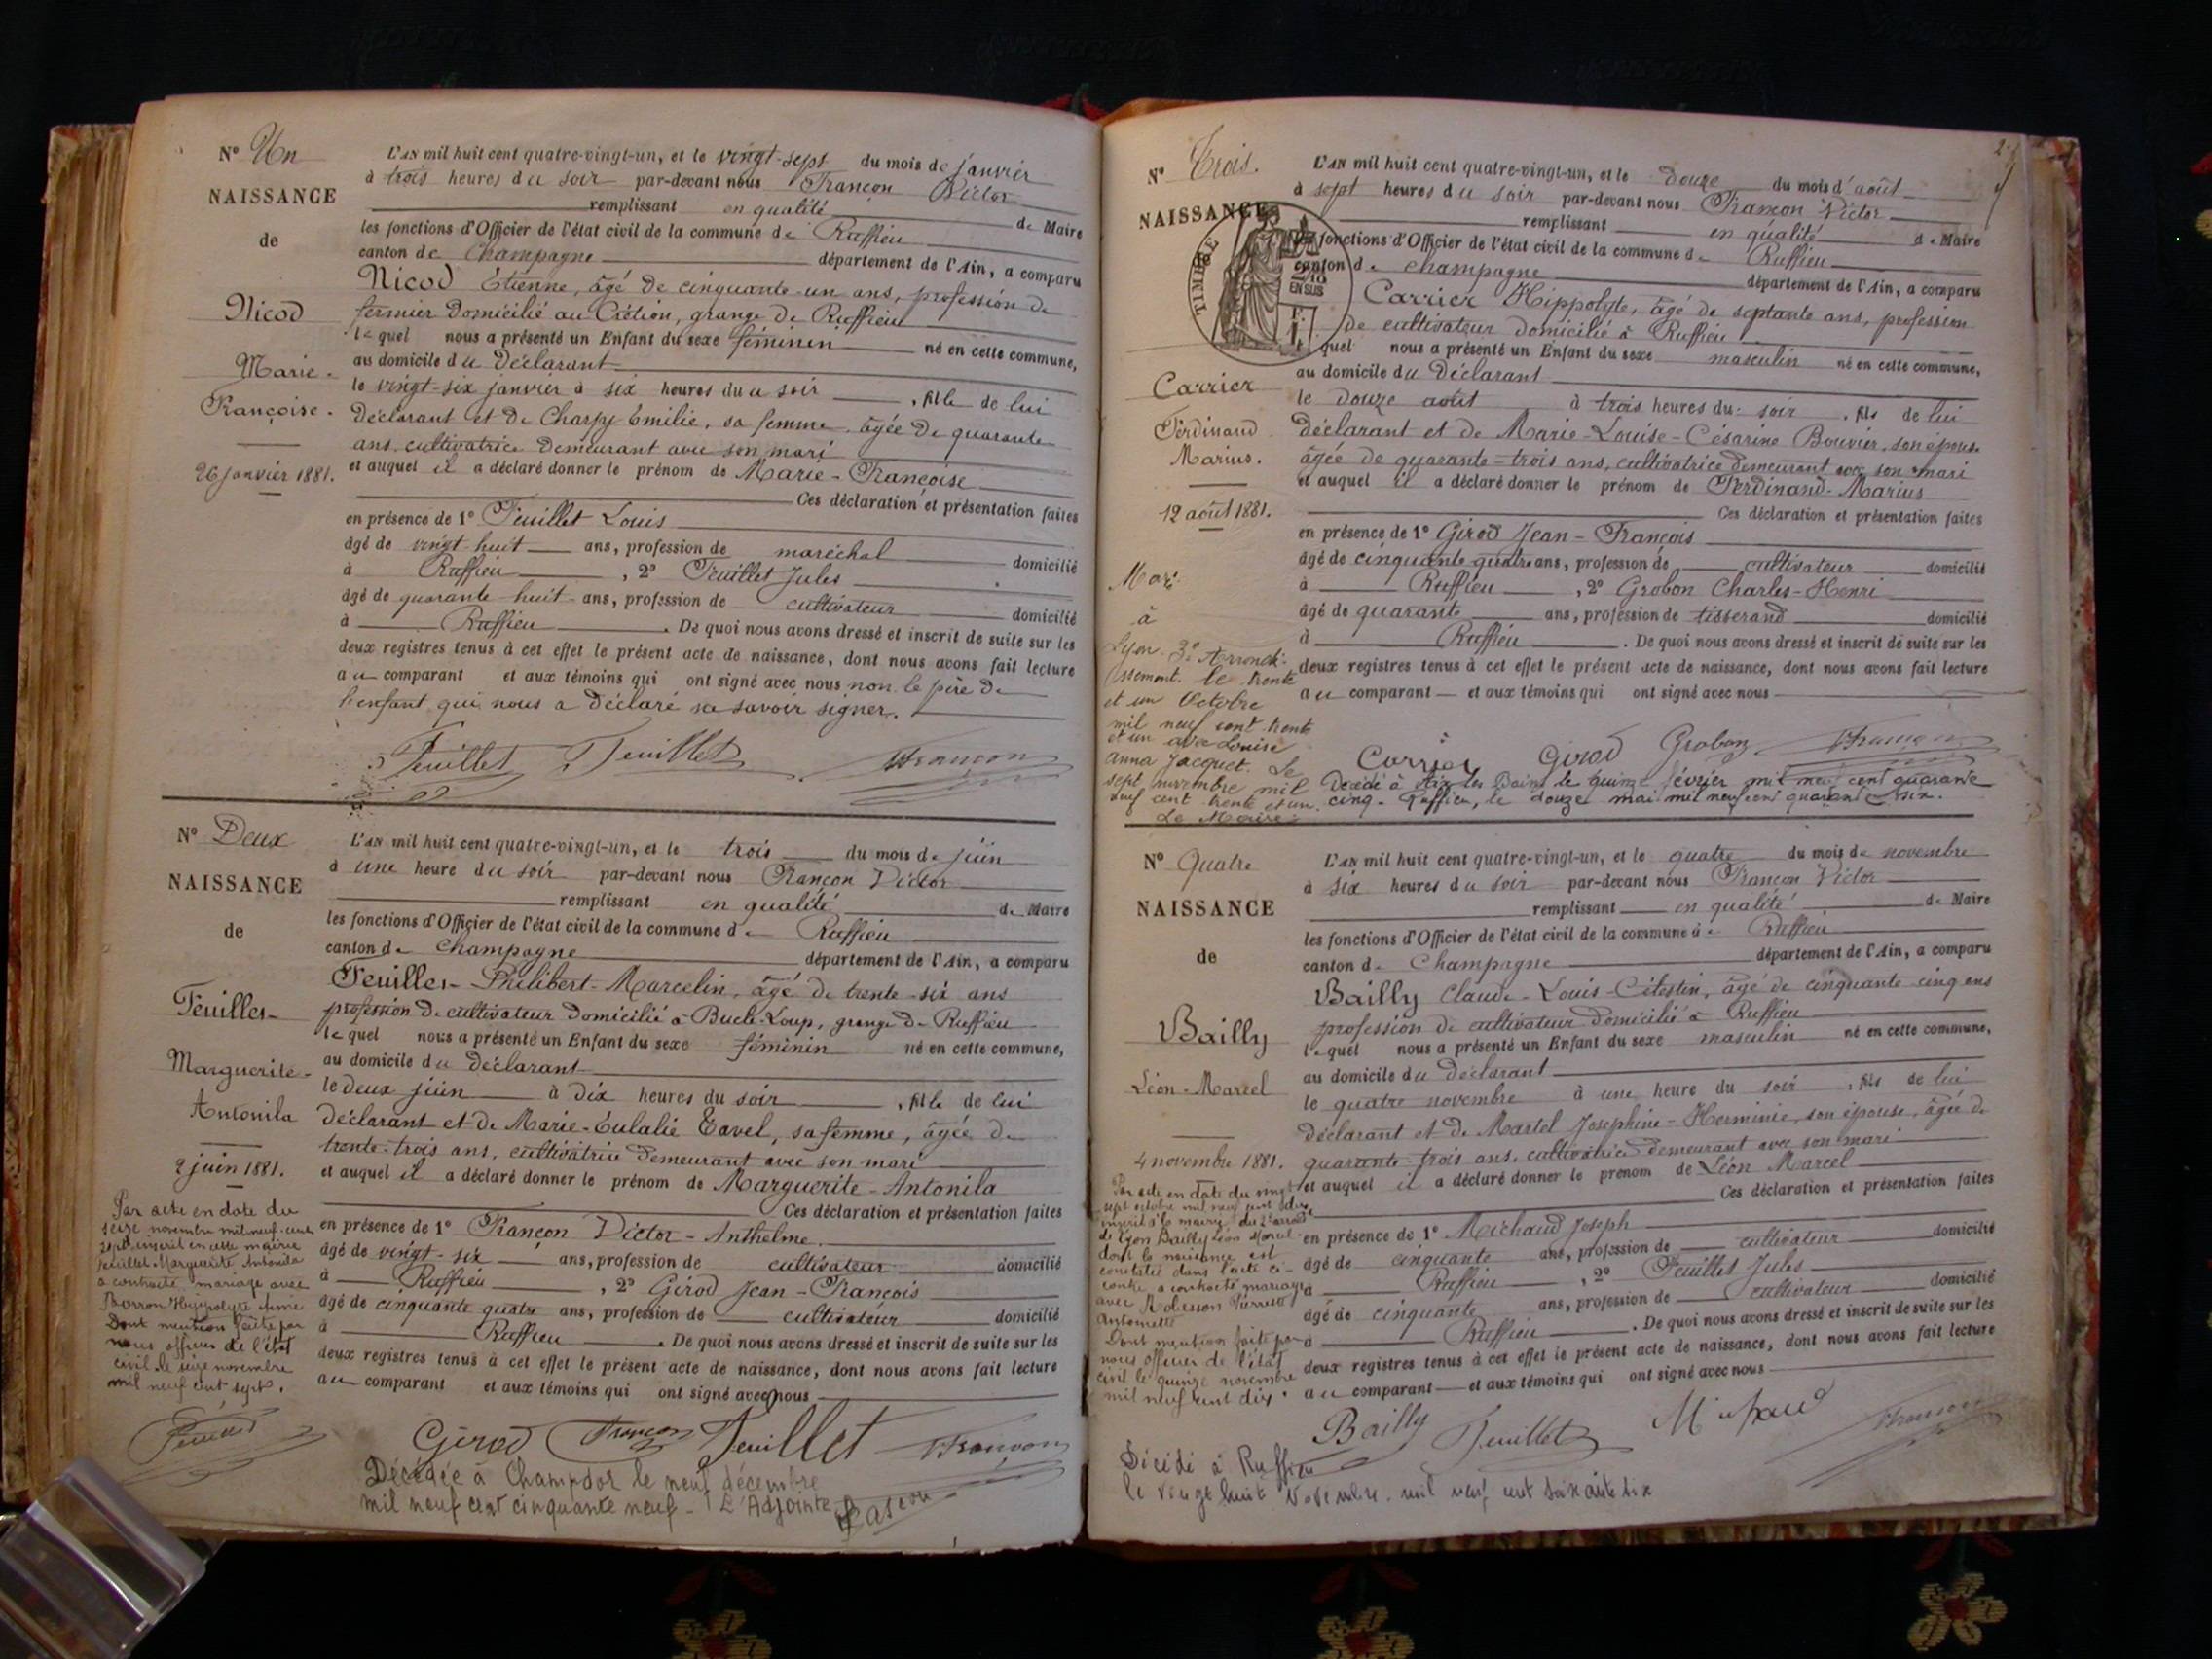 N° Un
NAISSANCE
de
Nicod
Marie-
Françoise.
26 janvier 1881.
L'AN mil huit cent quatre-vingt-un, et le vingt-sept du mois de janvier
à trois heures du soir par-devant nous Françon Victor
remplissant en qualité de Maire
les fonctions d'Officier de l'état civil de la commune de Ruffieu
canton de Champagne département de l'Ain, a comparu
Nicod Étienne, âgé de cinquante-un ans, profession de
fermier domicilié au Crétion, grange de Ruffieu
lequel nous a présenté un Enfant du sexe féminin né en cette commune,
au domicile du déclarant
le vingt-six janvier à six heures du soir , fille de lui
déclarant et de Charpy Emilie, sa femme, âgée de quarante
ans, cultivatrice demeurant avec son mari
et auquel il a déclaré donner le prénom de Marie-Françoise
Ces déclaration et présentation faites
en présence de 1° Feuillet Louis
âgé de vingt-huit ans, profession de maréchal domicilié
à Ruffieu , 2° Feuillet Jules
âgé de quarante-huit ans, profession de cultivateur domicilié
à Ruffieu . De quoi nous avons dressé et inscrit de suite sur les
deux registres tenus à cet effet le présent acte de naissance, dont nous avons fait lecture
au comparant et aux témoins qui ont signé avec nous non le père de
l'enfant qui nous a déclaré ne savoir signer.
Feuillet Feuillet Françon
N° Deux
NAISSANCE
de
Feuillet
Marguerite-
Antonila
2 juin 1881.
Par acte en date du
seize novembre mil neuf cent
sept inscrit en cette mairie
Feuillet Marguerite Antonila
a contracté mariage avec
Borron Hippolyte Aimé
Dont mention faite par
nous officier de l'état
civil le seize novembre
mil neuf cent sept.
L'AN mil huit cent quatre-vingt-un, et le trois du mois de juin
à une heure du soir par-devant nous Françon Victor
remplissant en qualité de Maire
les fonctions d'Officier de l'état civil de la commune de Ruffieu
canton de Champagne département de l'Ain, a comparu
Feuillet Philibert-Marcelin, âgé de trente-six ans
profession de cultivateur domicilié à Bucle-Loup, grange de Ruffieu
lequel nous a présenté un Enfant du sexe féminin né en cette commune,
au domicile du déclarant
le deux juin à dix heures du soir , fille de lui
déclarant et de Marie-Eulalie Tavel, sa femme, âgée de
trente-trois ans, cultivatrice demeurant avec son mari
et auquel il a déclaré donner le prénom de Marguerite-Antonila
Ces déclaration et présentation faites
en présence de 1° Françon Victor-Anthelme
âgé de vingt-six ans, profession de cultivateur domicilié
à Ruffieu , 2° Girod Jean-François
âgé de cinquante quatre ans, profession de cultivateur domicilié
à Ruffieu . De quoi nous avons dressé et inscrit de suite sur les
deux registres tenus à cet effet le présent acte de naissance, dont nous avons fait lecture
au comparant et aux témoins qui ont signé avec nous
Girod Françon Feuillet Françon
Décédée à Champdor le neuf décembre
mil neuf cent cinquante neuf - L'Adjointe
2
N° Trois.
NAISSANCE
TIMBRE
2/10
EN SUS
Carrier
Ferdinand
Marius.
12 août 1881.
Marié
à
Lyon 3e Arrondi-
ssement. le trente
et un Octobre
mil neuf cent trente
et un avec Louise
Anna Jacquet. Le
sept novembre mil
neuf cent trente et un.
Le Maire:
L'AN mil huit cent quatre-vingt-un, et le douze du mois d'août
à sept heures du soir par-devant nous Françon Victor
remplissant en qualité de Maire
les fonctions d'Officier de l'état civil de la commune de Ruffieu
canton de Champagne département de l'Ain, a comparu
Carrier Hippolyte, âgé de septante ans, profession
de cultivateur domicilié à Ruffieu
quel nous a présenté un Enfant du sexe masculin né en cette commune,
au domicile du déclarant
le douze août à trois heures du soir , fils de lui
déclarant et de Marie-Louise-Césarine Bouvier, son épouse
âgée de quarante-trois ans, cultivatrice demeurant avec son mari
et auquel il a déclaré donner le prénom de Ferdinand-Marius
Ces déclaration et présentation faites
en présence de 1° Girod Jean-François
âgé de cinquante quatre ans, profession de cultivateur domicilié
à Ruffieu , 2° Grobon Charles-Henri
âgé de quarante ans, profession de tisserand domicilié
à Ruffieu . De quoi nous avons dressé et inscrit de suite sur les
deux registres tenus à cet effet le présent acte de naissance, dont nous avons fait lecture
au comparant et aux témoins qui ont signé avec nous
Carrier Girod Grobon Françon
Décédé à Aix les Bains le quinze février mil neuf cent quarante
cinq. Ruffieu, le douze mai mil neuf cent quarante six.
N° Quatre
NAISSANCE
de
Bailly
Léon-Marcel
4 novembre 1881.
Par acte en date du vingt
sept octobre mil neuf cent
inscrit à la mairie du 2e arrond
de Lyon Bailly Léon Marcel
dont la naissance est
constatée dans l'acte ci-
contre a contracté mariage
avec Pierrette
Antoinette
Dont mention faite par
nous officier de l'état
civil le quinze novembre
mil neuf cent dix.
L'AN mil huit cent quatre-vingt-un, et le quatre du mois de novembre
à six heures du soir par-devant nous Françon Victor
remplissant en qualité de Maire
les fonctions d'Officier de l'état civil de la commune de Ruffieu
canton de Champagne département de l'Ain, a comparu
Bailly Claude-Louis-Célestin, âgé de cinquante cinq ans
profession de cultivateur domicilié à Ruffieu
lequel nous a présenté un Enfant du sexe masculin né en cette commune,
au domicile du déclarant
le quatre novembre à une heure du soir , fils de lui
déclarant et de Martel Joséphine-Herminie, son épouse, âgée de
quarante-trois ans, cultivatrice demeurant avec son mari
et auquel il a déclaré donner le prénom de Léon Marcel
Ces déclaration et présentation faites
en présence de 1° Michaud Joseph
âgé de cinquante ans, profession de cultivateur domicilié
à Ruffieu , 2° Feuillet Jules
âgé de cinquante ans, profession de cultivateur domicilié
à Ruffieu . De quoi nous avons dressé et inscrit de suite sur les
deux registres tenus à cet effet le présent acte de naissance, dont nous avons fait lecture
au comparant et aux témoins qui ont signé avec nous
Bailly Feuillet Michaud Françon
Décédé à Ruffieu
le vingt huit Novembre mil neuf cent soixante six